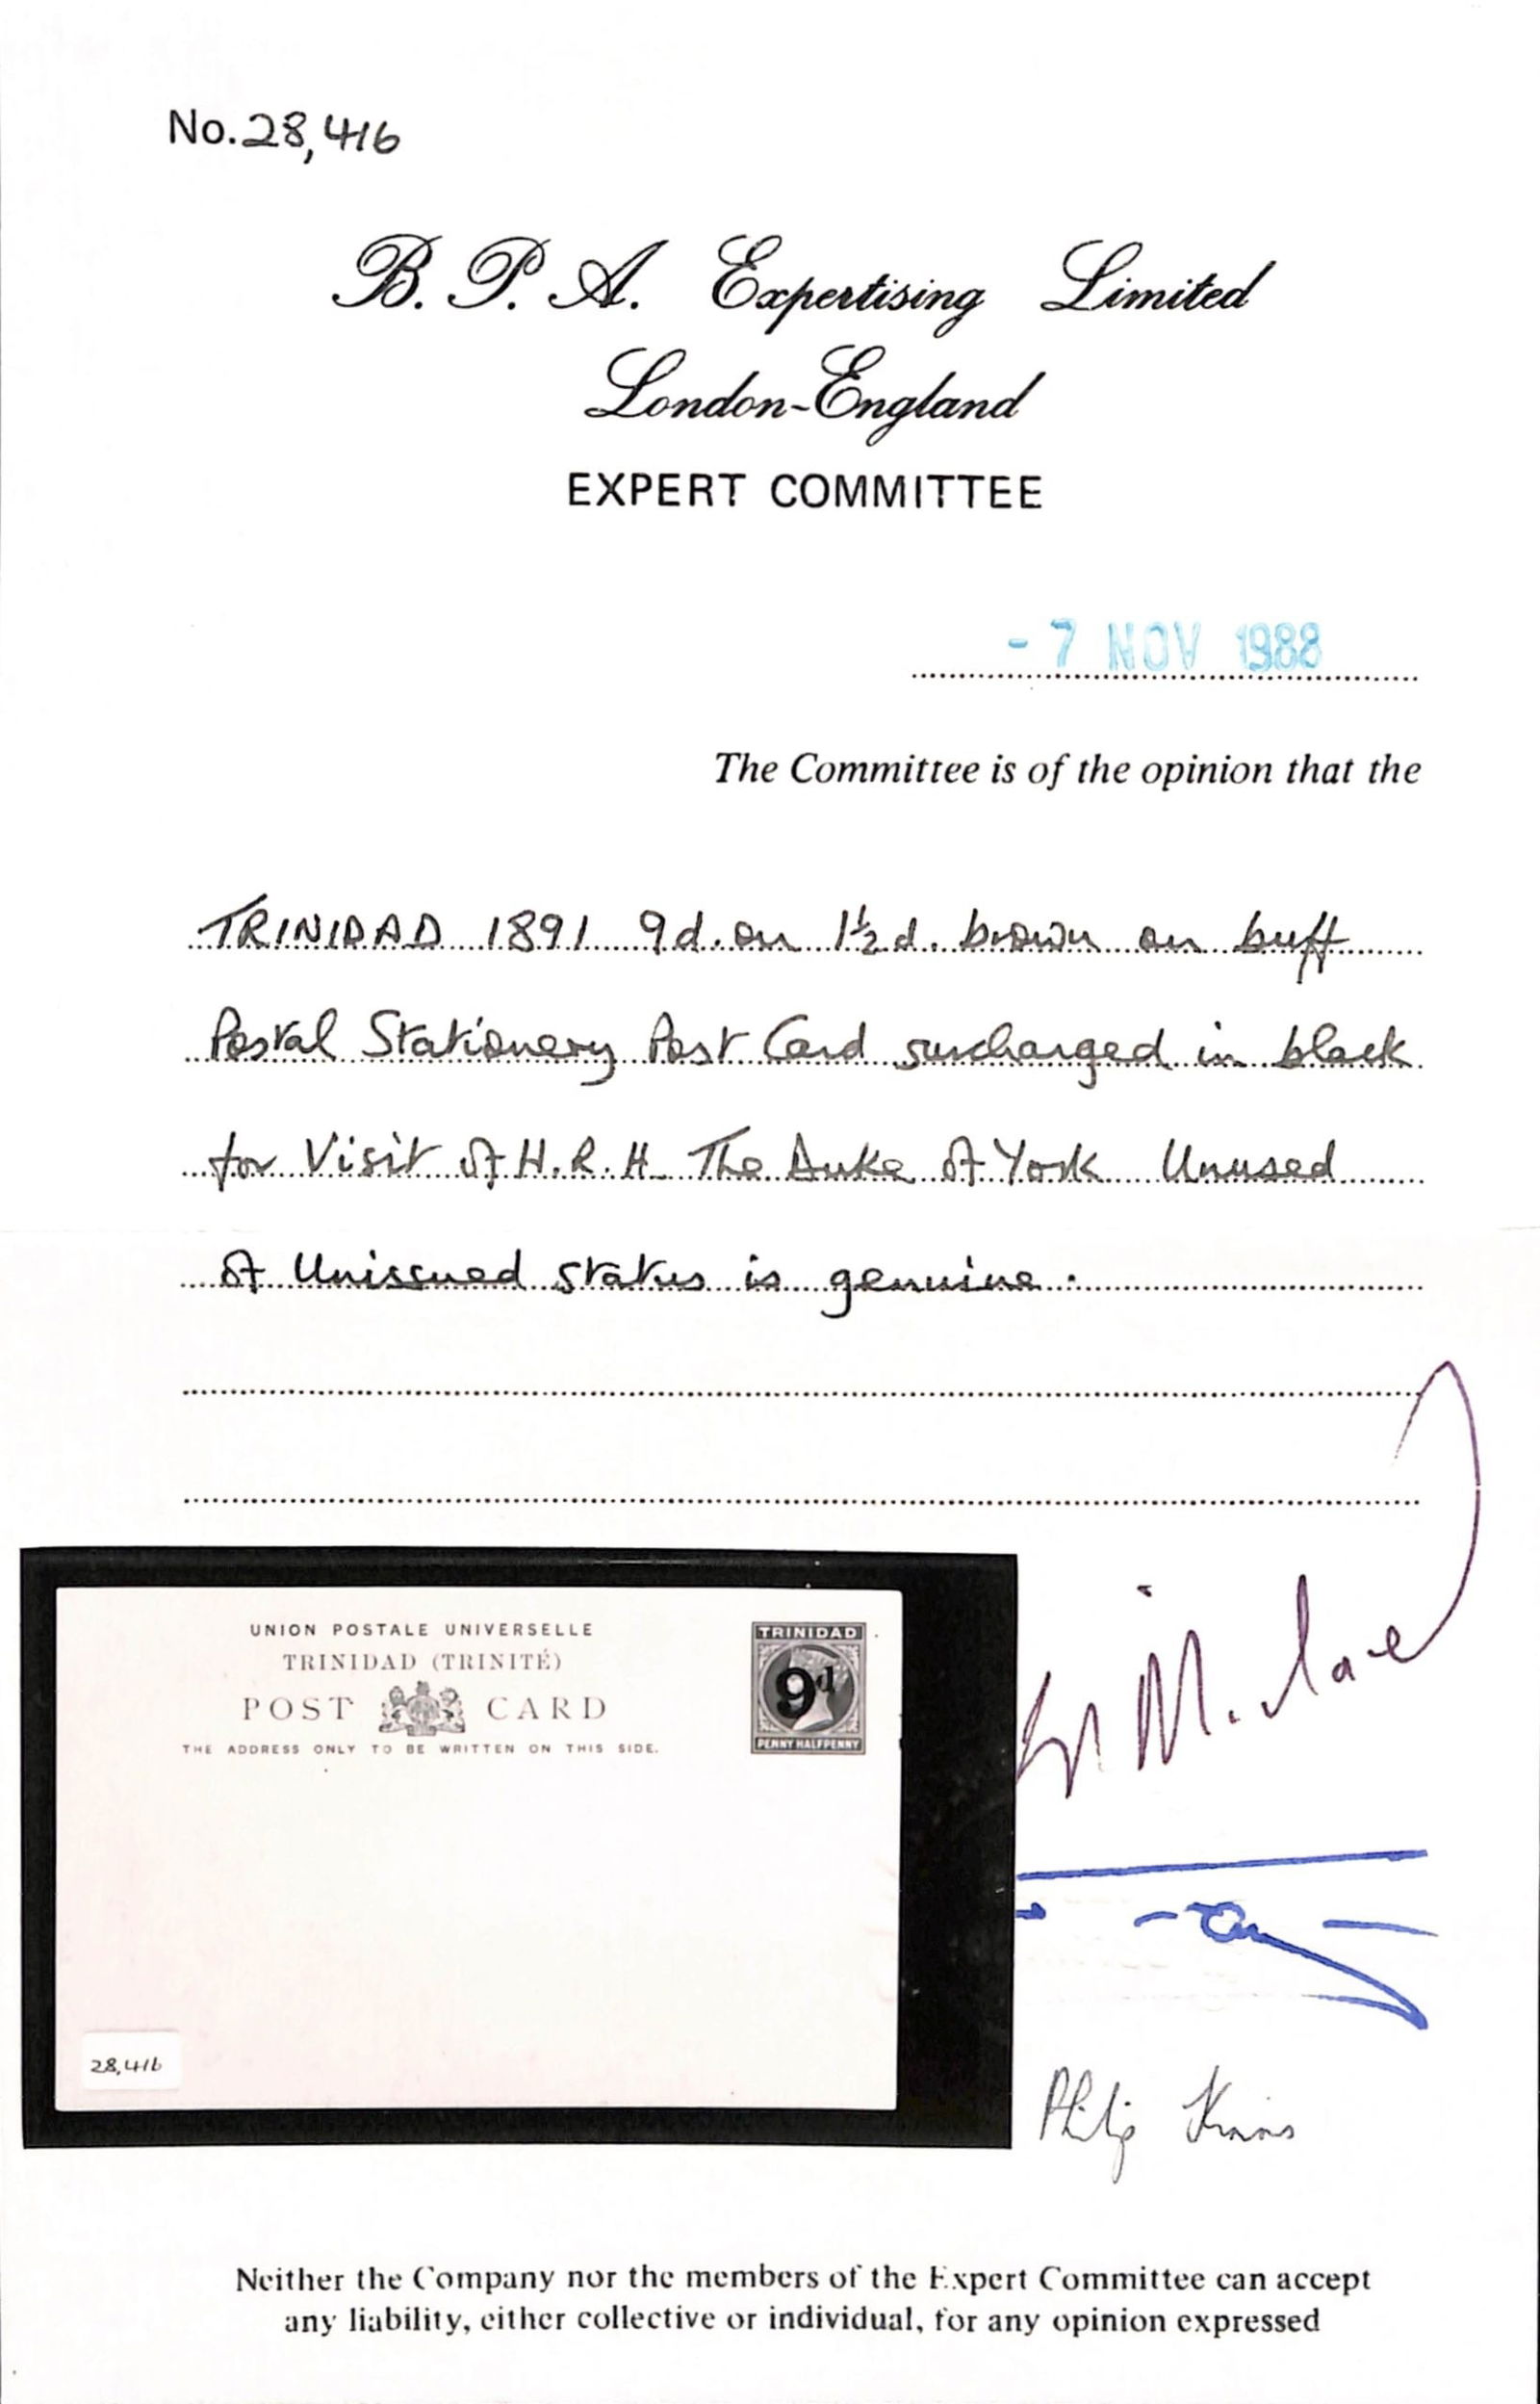 No. 28,416
B. P. A. Expertising Limited
London-England
EXPERT COMMITTEE
- 7 NOV 1988
The Committee is of the opinion that the
TRINIDAD 1891 9d. on 1½d. brown on buff
Postal Stationery Post Card surcharged in black
for Visit of H.R.H. The Duke of York Unused
of Unissued status is genuine.
UNION POSTALE UNIVERSELLE
TRINIDAD (TRINITÉ)
POST CARD
THE ADDRESS ONLY TO BE WRITTEN ON THIS SIDE.
TRINIDAD
9d
PENNY HALFPENNY
28,416
Philip
Neither the Company nor the members of the Expert Committee can accept
any liability, either collective or individual, for any opinion expressed